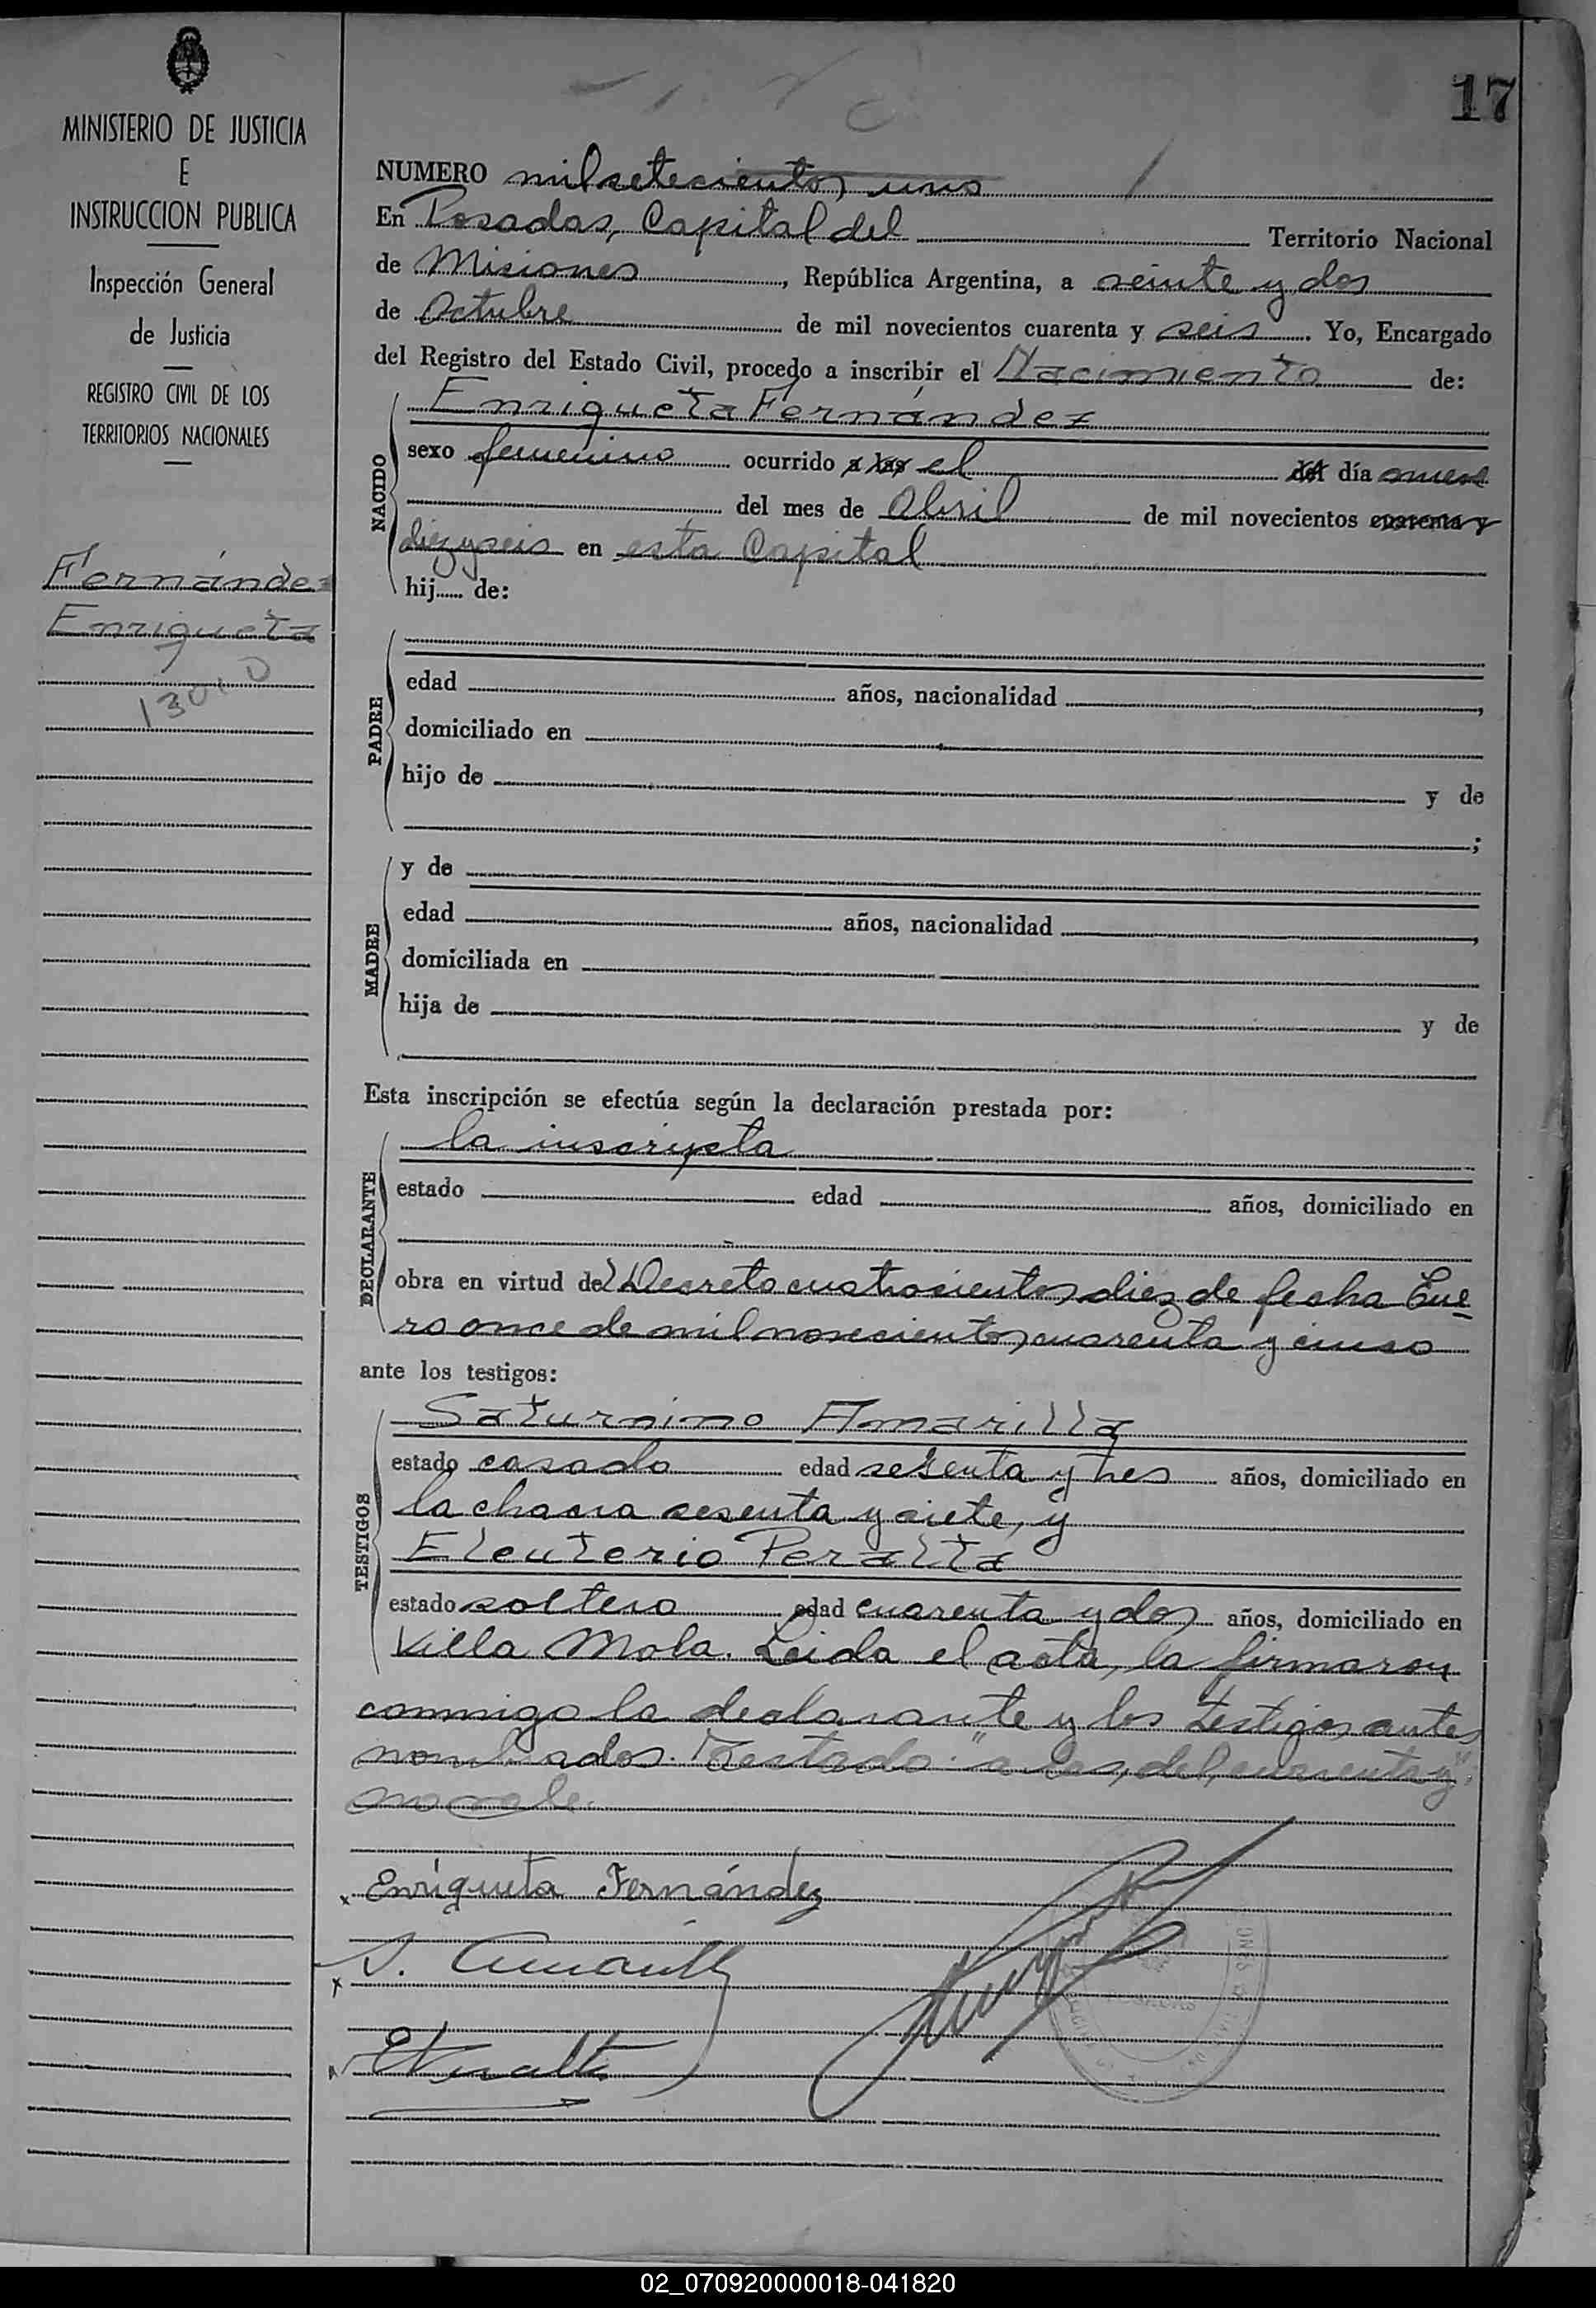 17
MINISTERIO DE JUSTICIA
E
INSTRUCCION PUBLICA
Inspección General
de Justicia
REGISTRO CIVIL DE LOS
TERRITORIOS NACIONALES
Fernández
Enriqueta
NUMERO mil setecientos uno
En Posadas, Capital del Territorio Nacional
de Misiones, República Argentina, a veinte y dos
de Octubre de mil novecientos cuarenta y seis. Yo, Encargado
del Registro del Estado Civil, procedo a inscribir el Nacimiento de:
NACIDO
Enriqueta Fernández
sexo femenino ocurrido a las el del día nueve
del mes de Abril de mil novecientos cuarenta y
diez y seis en esta Capital
hij de:
PADRE
edad años, nacionalidad ,
domiciliado en
hijo de y de
;
MADRE
y de
edad años, nacionalidad ,
domiciliada en
hija de y de
Esta inscripción se efectúa según la declaración prestada por:
DECLARANTE
la inscripta
estado edad años, domiciliado en
obra en virtud del Decreto cuatrocientos diez de fecha Ene
ro once de mil novecientos cuarenta y cinco
ante los testigos:
TESTIGOS
Saturnino Amarilla
estado casado edad setenta y tres años, domiciliado en
la chacra sesenta y siete, y
Eleuterio Peralta
estado soltero edad cuarenta y dos años, domiciliado en
Villa Mola. Leida el acta, la firmaron
conmigo la declarante y los testigos antes
nombrados. Testado: "a las, del, cuarenta y":
no vale.
x Enriqueta Fernández
x S. Amarilla
x E Peralta
02_070920000018-041820